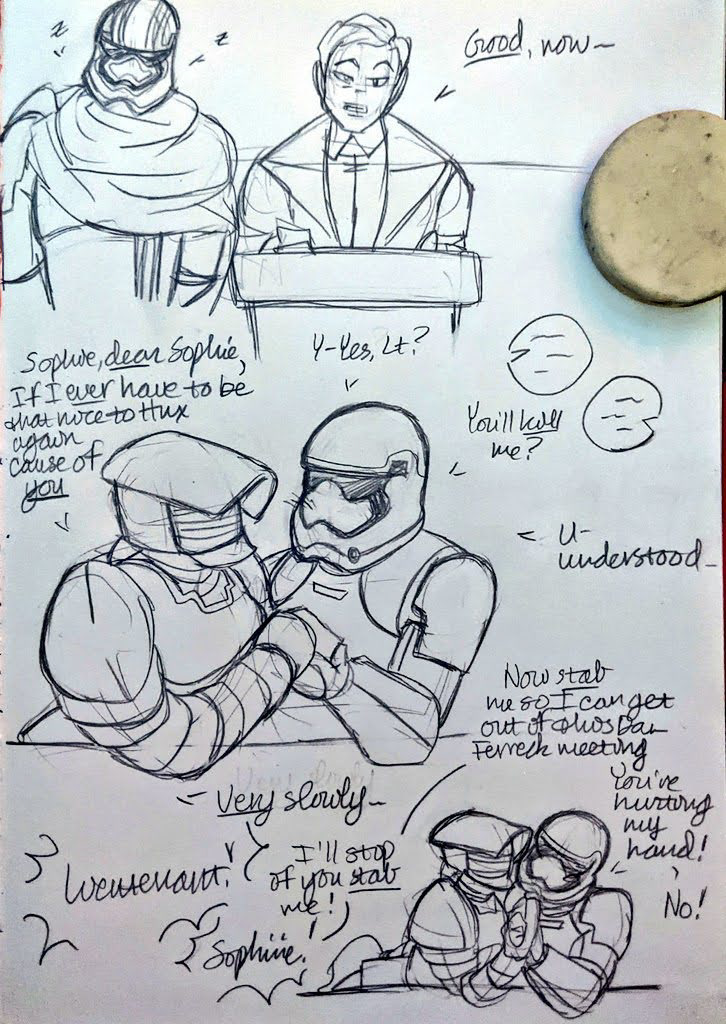 z
z
z
Good, now~
Sophie, dear Sophie,
If I ever have to be
that nice to Hux
again
cause of
you
Y-Yes, Lt?
You'll kill
me?
U-
understood_
Very slowly~
Now stab
me so I can get
out of this Dan
Ferreck meeting
You're
hurting
my
hand!
No!
Lieutenant!
I'll stop
if you stab
me!
Sophiiie!